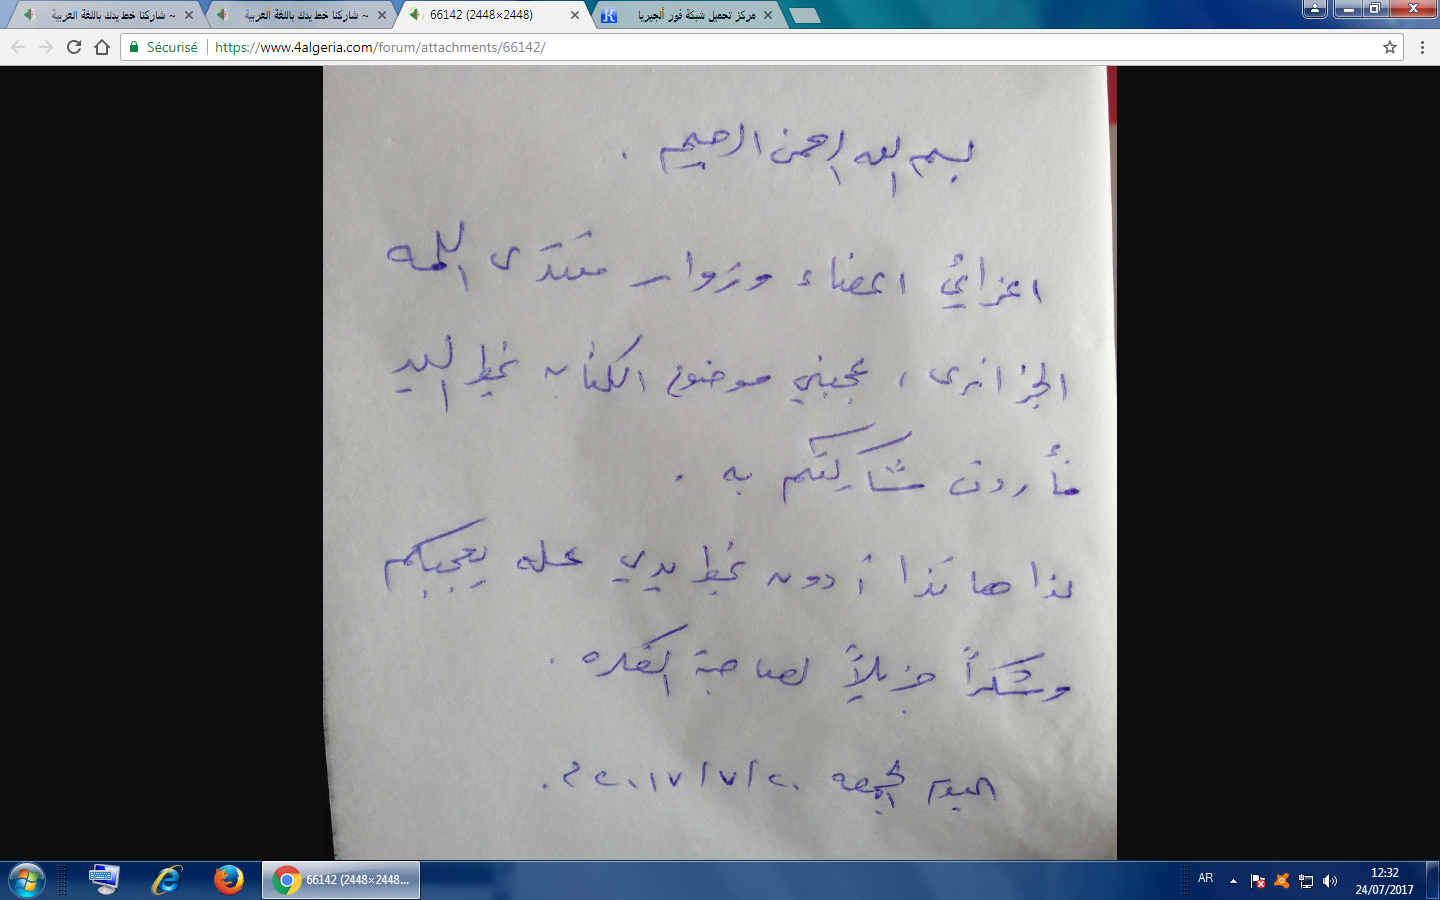 ~ شاركنا خط يدك باللغة العربية
~ شاركنا خط يدك باللغة العربية
66142 (2448×2448)
مركز تحميل شبكة فور ألجيريا
Sécurisé
https://www.4algeria.com/forum/attachments/66142/
بسم الله الرحمن الرحيم .
اعزائي اعضاء وزوار منتدى اللمه
الجزائرى ، عجبني موضوع الكتابه بخط اليد
فأردت مشاركتكم به .
لذا هانذا أدون بخط يدي عله يعجبكم
وشكراً جزيلاً لصاحبة الفكره .
اليوم الجمعه ٢٠١٧/٧/٢٠ م .
66142 (2448×2448...
AR
12:32
24/07/2017